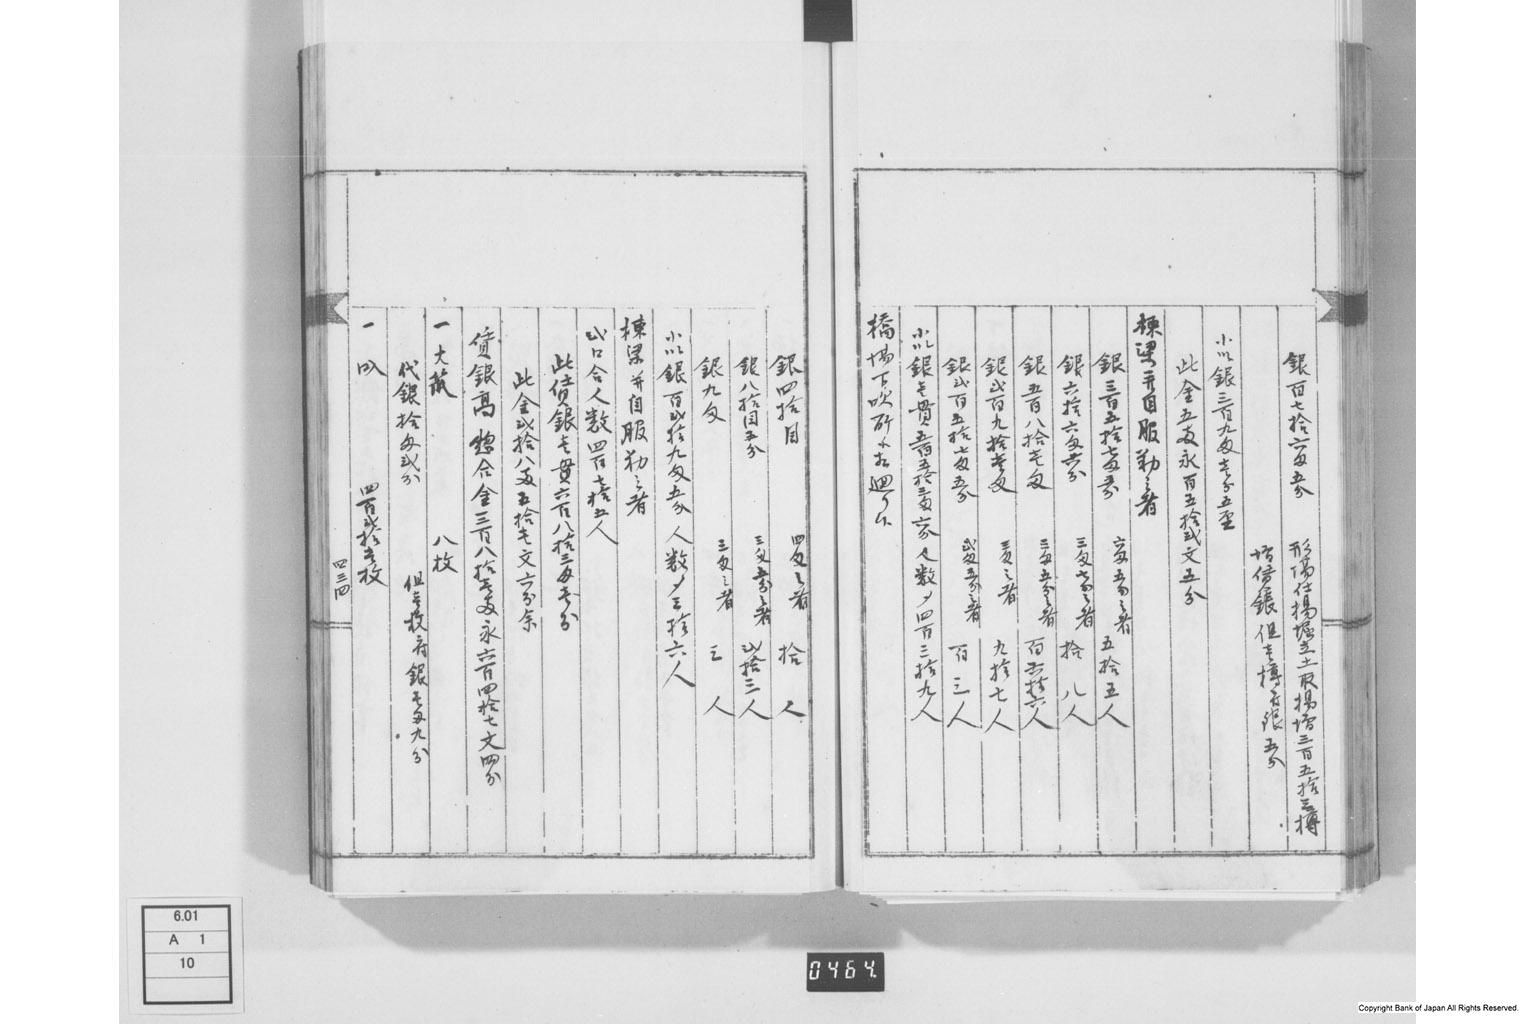 銀百七拾六匁五分 形場仕揚堀立土取揚増三百五拾三樽
増賃銀但壱樽ニ付銀五分
小以銀三百九匁壱分五厘
此金五両永百五拾弐文五分
棟梁并自服勤之者
銀三百五拾七匁五分 六匁五分之者 五拾五人
銀六拾六匁六分 三匁七分之者 拾八人
銀五百八拾壱匁 三匁五分之者 百六拾六人
銀弐百九拾壱匁 三匁之者 九拾七人
銀弐百五拾七匁五分 弐匁五分之者 百三人
小以銀壱貫五百五拾三匁六分 人数〆四百三拾九人
橋場下吹所
銀四拾目 四匁之者 拾人
銀八拾目五分 三匁五分之者 弐拾三人
銀九匁 三匁之者 三人
小以銀百弐拾九匁五分 人数〆三拾六人
棟梁并自服勤之者
弐口合人数四百七拾五人
此賃銀壱貫六百八拾三匁壱分
此金弐拾八両五拾壱文六分余
賃銀高惣合金三百八拾壱両永六百四拾七文四分
一大 八枚
代銀拾匁弐分 但壱枚ニ付銀壱匁九分
一 四百弐拾壱枚
四三四
0464.
6.01
A 1
10
Copyright Bank of Japan All Rights Reserved.